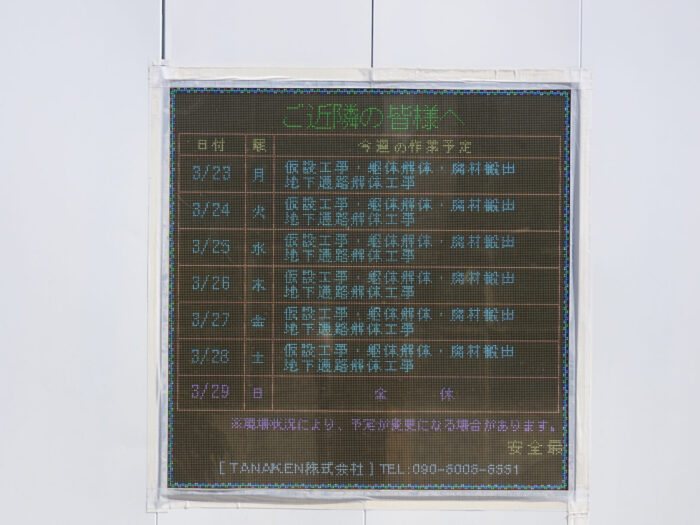 ご近隣の皆様へ
日付 曜 今週の作業予定
3/23 月 仮設工事・躯体解体・廃材搬出
地下通路解体工事
3/24 火 仮設工事・躯体解体・廃材搬出
地下通路解体工事
3/25 水 仮設工事・躯体解体・廃材搬出
地下通路解体工事
3/26 木 仮設工事・躯体解体・廃材搬出
地下通路解体工事
3/27 金 仮設工事・躯体解体・廃材搬出
地下通路解体工事
3/28 土 仮設工事・躯体解体・廃材搬出
地下通路解体工事
3/29 日 全 休
※現場状況により、予定が変更になる場合があります。
安全最
[TANAKEN株式会社] TEL: